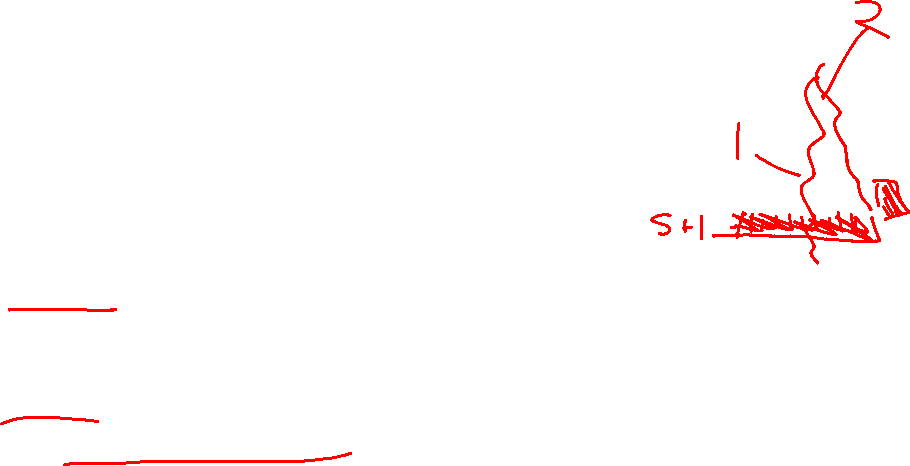 2
1
S+1